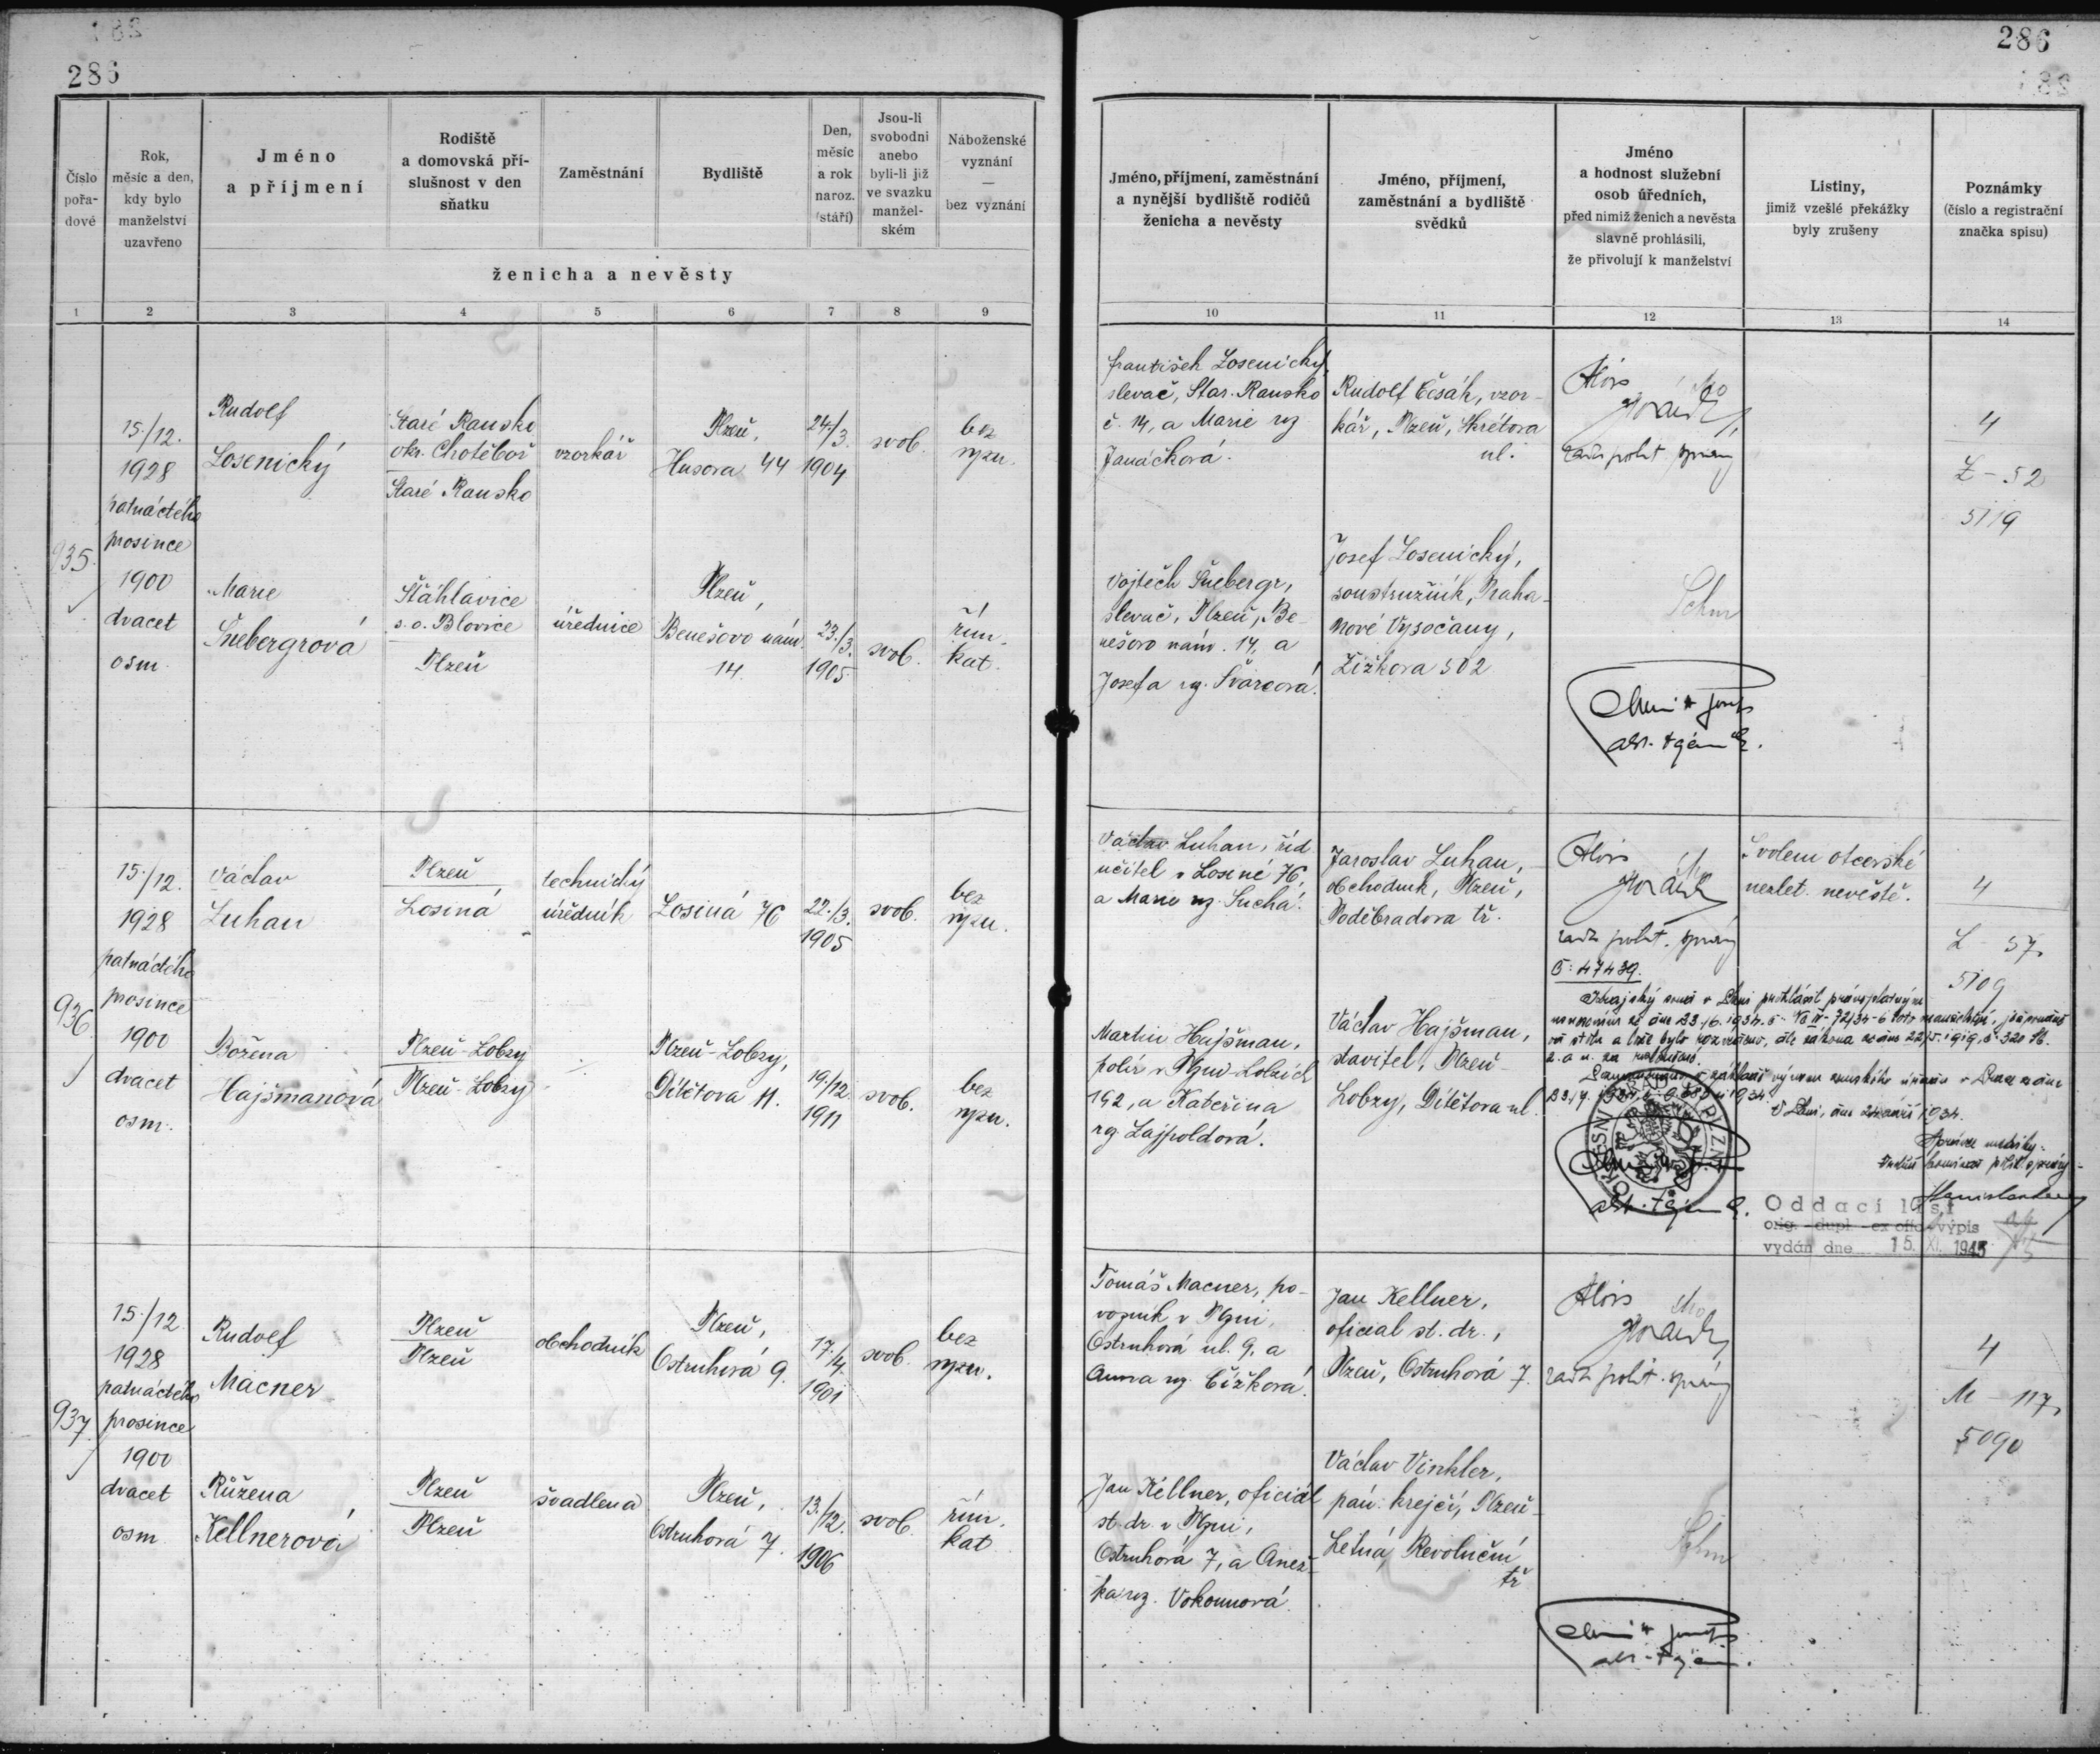 286
286
Číslo pořa-dové
Rok, měsíc a den, kdy bylo manželství uzavřeno
Jméno a příjmení
Rodiště a domovská pří-slušnost v den sňatku
Zaměstnání
Bydliště
Den, měsíc a rok naroz. (stáří)
Jsou-li svobodni anebo byli-li již ve svazku manžel-ském
Náboženské vyznání — bez vyznání
ženicha a nevěsty
Jméno, příjmení, zaměstnání a nynější bydliště rodičů ženicha a nevěsty
Jméno, příjmení, zaměstnání a bydliště svědků
Jméno a hodnost služební osob úředních, před nimiž ženich a nevěsta slavně prohlásili, že přivolují k manželství
Listiny, jimiž vzešlé překážky byly zrušeny
Poznámky (číslo a registrační značka spisu)
1 2 3 4 5 6 7 8 9 10 11 12 13 14
935.
15./12.
1928
patnáctého
prosince
1900
dvacet
osm
Rudolf
Losenický
Staré Ransko
okr. Chotěboř
Staré Ransko
vzorkář
Plzeň,
Husova 44
24./3.
1904
svob.
bez
vyzn.
František Losenický,
slevač, Star. Ransko
č. 14, a Marie roz
Janáčková.
Rudolf Česák, vzor-
kář, Plzeň, Skrétova
ul.
Alois
rada polit. správy
4
L - 52
5119
Marie
Šnebergrová
Šťáhlavice
s. o. Blovice
Plzeň
úřednice
Plzeň,
Benešovo nám.
14.
23./3.
1905
svob.
řím.
kat.
Vojtěch Šnebergr,
slevač, Plzeň, Be-
nešovo nám. 14, a
Josefa rz. Švarcová.
Josef Losenický,
soustružník, Praha-
Nové Vysočany,
Žižkova 502
936.
15./12.
1928
patnáctého
prosince
1900
dvacet
osm.
Václav
Luhan
Plzeň
Losiná
technický
úředník
Losiná 76
22./3.
1905
svob.
bez
vyzn.
Václav Luhan, říd
učitel v Losiné 76,
a Marie rz. Suchá.
Jaroslav Luhan,
obchodník, Plzeň,
Poděbradova tř.
Alois
rada polit. správy
Svolení otcovské
nezlet. nevěstě.
4
L - 57
5109
Božena
Hajšmanová
Plzeň-Lobzy
Plzeň-Lobzy
Plzeň-Lobzy,
Dítětova 11.
19./12.
1911
svob.
bez
vyzn.
Martin Hajšman,
polír v Plzni-Lobzích
192, a Kateřina
rz. Lajpoldová.
Václav Hajšman,
stavitel, Plzeň-
Lobzy, Dítětova ul.
Č: 47439.
Krajský soud v Plzni prohlásil
Oddací list
orig. - dupl. - ex offo - výpis
vydán dne 15. XI. 1945
937.
15./12
1928
patnáctého
prosince
1900
dvacet
osm
Rudolf
Macner
Plzeň
Plzeň
obchodník
Plzeň,
Ostruhová 9.
17./4.
1901
svob.
bez
vyzn.
Tomáš Macner, po-
vozník v Plzni,
Ostruhová ul. 9, a
Anna rz. Čížková.
Jan Kellner,
oficial st. dr.,
Plzeň, Ostruhová 7.
Alois
rada polit. správy
4
M - 117
5090
Růžena
Kellnerová
Plzeň
Plzeň
švadlena
Plzeň,
Ostruhová 7.
13./12.
1906
svob.
řím.
kat
Jan Kellner, oficiál
st. dr. v Plzni,
Ostruhová 7, a Anež-
ka roz. Vokounová.
Václav Vinkler,
pán. krejčí, Plzeň-
Letná, Revoluční
tř